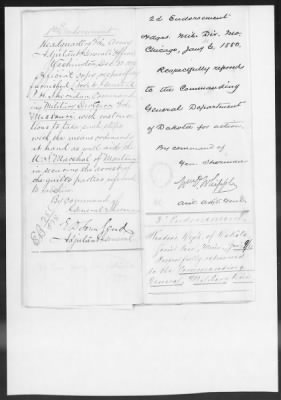 1st Endorsement
Headquarters of the Army
Adjutant General's Office
Washington, Dec. 30, 1879
Official copy respectfully
furnished to General
P. H. Sheridan Commanding
Military Division of the
Missouri, with instruc-
tions to take such steps
with the means commands
at hand as will aid the
U.S. Marshal of Montana
in securing the arrest of
the guilty parties referred
to
By command
General Sherman
E. D. Townsend
Adjutant General
2d Endorsement
Hdqrs. Mil. Div. Mo.
Chicago, Jany 6, 1880.
Respectfully referred
to the Commanding
General Department
of Dakota for action.
By command of
Gen. Sherman
Wm D. Whipple
Asst Adjt. Genl.
3d Endorsement
Headqrs Dept. of Dakota
Respectfully returned
to the Commanding
General, Military Divn